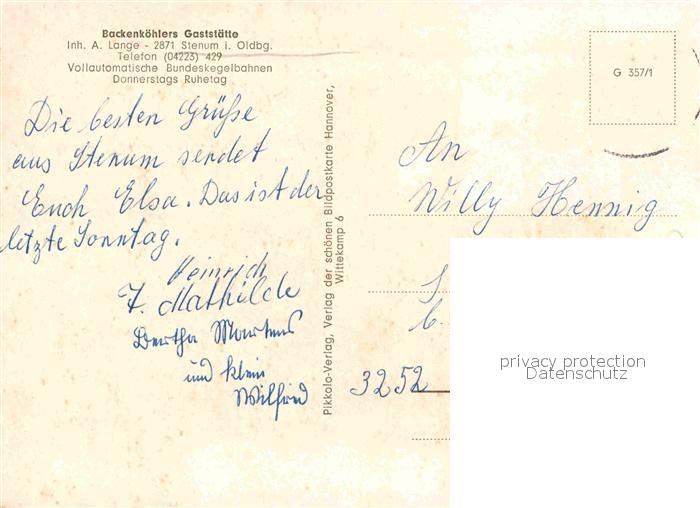 Backenköhlers Gaststätte
Inh. A. Lange - 2871 Stenum i. Oldbg.
Telefon (04223) 429
Vollautomatische Bundeskegelbahnen
Donnerstags Ruhetag
Die besten Grüße
aus Stenum sendet
Euch Elsa. Das ist der
letzte Sonntag.
Heinrich
T. Mathilde
Bertha Martens
und klein
Wilfried
Pikkolo-Verlag, Verlag der schönen Bildpostkarte Hannover,
Wittekamp 6
G 357/1
An
Willy Hennig
3252
privacy protection
Datenschutz